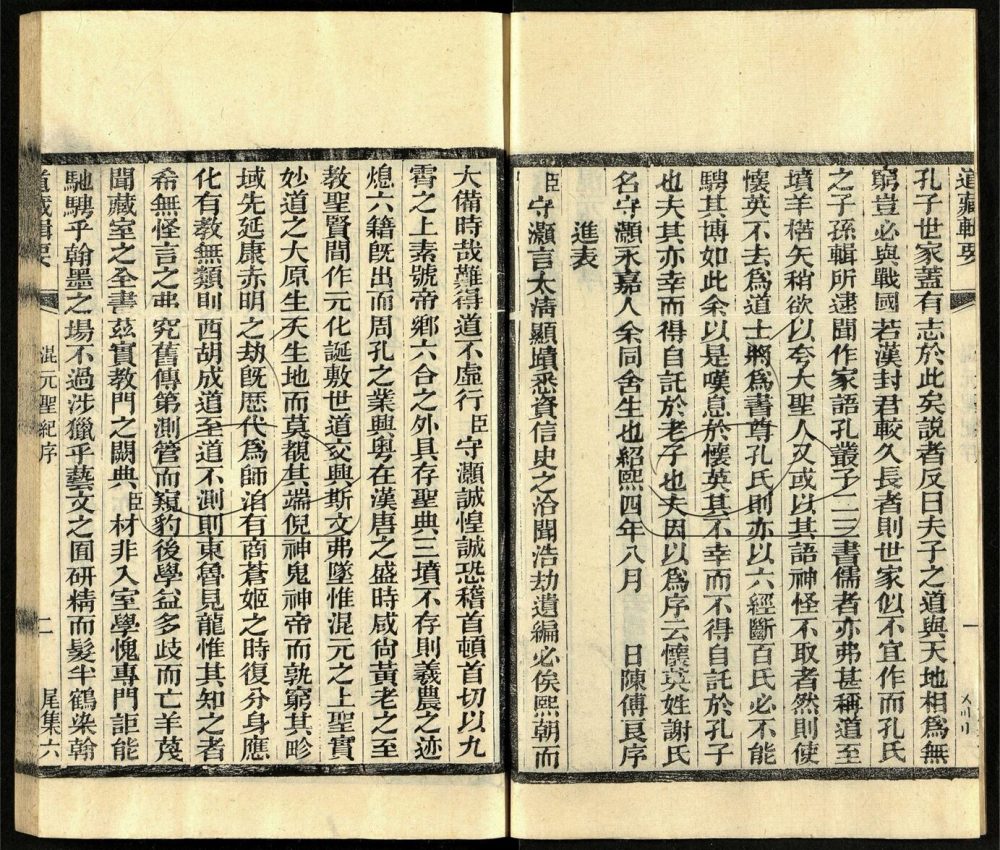 道藏輯要
孔子世家蓋有志於此矣說者反曰夫子之道與天地相爲無
窮豈必與戰國若漢封君較久長者則世家似不宜作而孔氏
之子孫輯所逮聞作家語孔叢子二三書儒者亦弗甚稱道至
墳羊楛矢稍欲以夸大聖人又或以其語神怪不取者然則使
懷英不去爲道士將爲書尊孔氏則亦以六經斷百氏必不能
騁其博如此余以是嘆息於懷英其不幸而不得自託於孔子
也夫其亦幸而得自託於老子也夫因以爲序云懷英姓謝氏
名守灝永嘉人余同舍生也紹熙四年八月 日陳傅良序
進表
臣守灝言太清顯墳悉資信史之洽聞浩劫遺編必俟熙朝而
大備時哉難得道不虛行臣守灝誠惶誠恐稽首頓首切以九
霄之上素號帝鄉六合之外具存聖典三墳不存則羲農之迹
熄六籍旣出而周孔之業興粵在漢唐之盛時咸尙黃老之至
教聖賢間作元化誕敷世道交興斯文弗墜惟混元之上聖實
妙道之大原生天生地而莫覩其端倪神鬼神帝而孰窮其畛
域先延康赤明之劫旣歷代爲師洎有商蒼姬之時復分身應
化有教無類則西胡成道至道不測則東魯見龍惟其知之者
希無怪言之弗究舊傳第測管而窺豹後學益多歧而亡羊蔑
聞藏室之全書茲實教門之闕典臣材非入室學愧專門詎能
馳騁乎翰墨之場不過涉獵乎藝文之囿研精而髮半鶴染翰
道藏輯要
混元聖紀序
二
尾集六